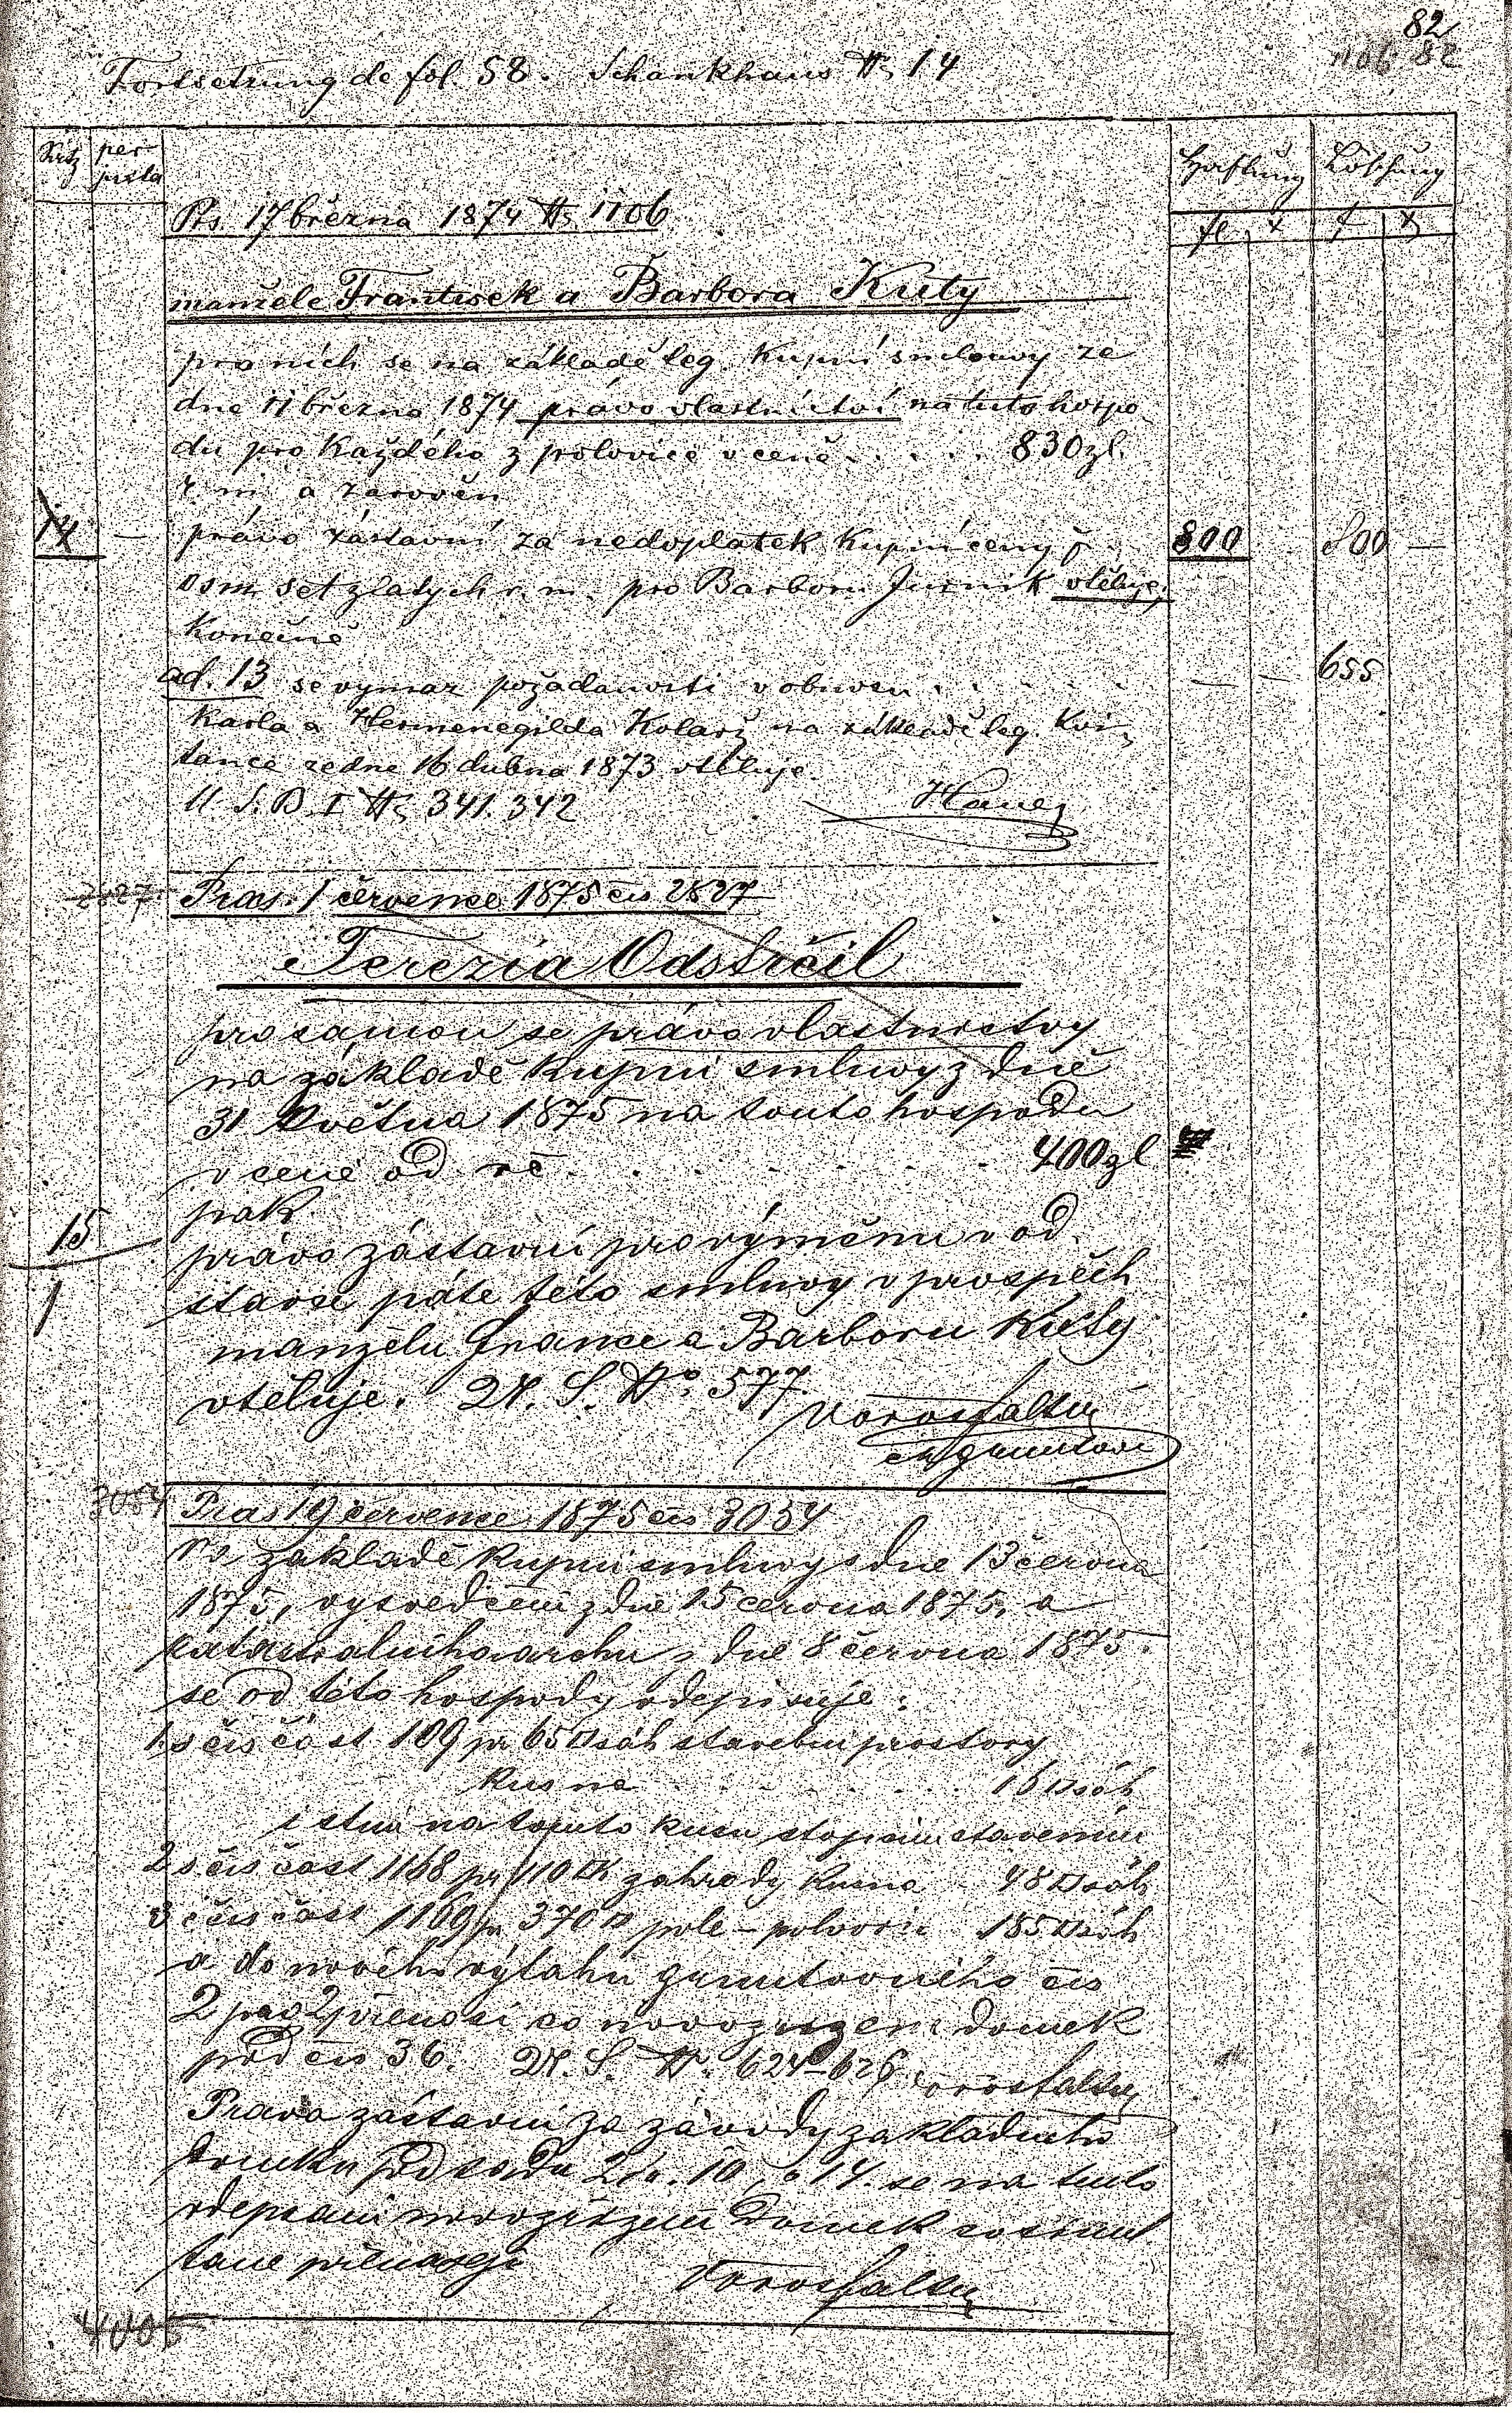 82
82
Fortsetzung de fol. 58. Schankhaus № 14
Satz
per
Haftung
Löschung
fl x f x
Prs. 17 března 1874 № 1106
manžele Frantisek a Barbora Kuty
pro nich se na základě leg. Kupní smlouvy ze
dne 11 března 1874 právo vlastnictví na tuto hospo
du pro každého z polovice v ceně . . . . . 830 zl.
r. m. a zároveň
14 — právo zástavní za nedoplatek kupní ceny 800 800 —
osm set zlatych r. m. pro Barboru vtěluje,
Konečně
ad. 13 se vymaz požadanosti v obnosu . . . . . — — 655
Karla a Hermenegilda Kolarž na základě leg. Kvi
tance ze dne 16 dubna 1873 vtěluje.
U. S. B. I № 341. 342
2827 Praes. 1 července 1875 čís 2827
Terezia Odstrčil
pro samou se právo vlastnostvy
na základě Kupni smluvy z dně
31 Května 1875 na touto hospodu
v ceně od rč . . . . . . . 400 zl
pak
15
1
právo zástavní pro výměnu v od
stavse páte této smluvy v prospěch
manželu France a Barboru Kuty
vtěluje. U. S. No. 577.
3054 Praes 19 července 1875 čís 3054
Na základě Kupni smluvy s dne 13 června
1875, vysvedčení z dně 15 června 1875, a
katastralního archu z dne 8 června 1875.
se od této hospody odepisuje:
1. s čís část 109 pr 65 □ sáh stavební prostory
Kus na . . . . . . . 16 □ sáh
na tomto kusu stojením stavením
2 s. čís část 1168 pr 110 □ zahrady Kusna 48 □ sáh
3 s čís část 1169 pr 370 □ pole – polovric 185 □ sáh
a do nového výtahu gruntovního čís
2 domek
pod čís 36. U. S. №. 624–626
Prava zástavní za závody zakladneho
domku pod 10, a 14. se na tuto
domek
tane přenaseji
4005